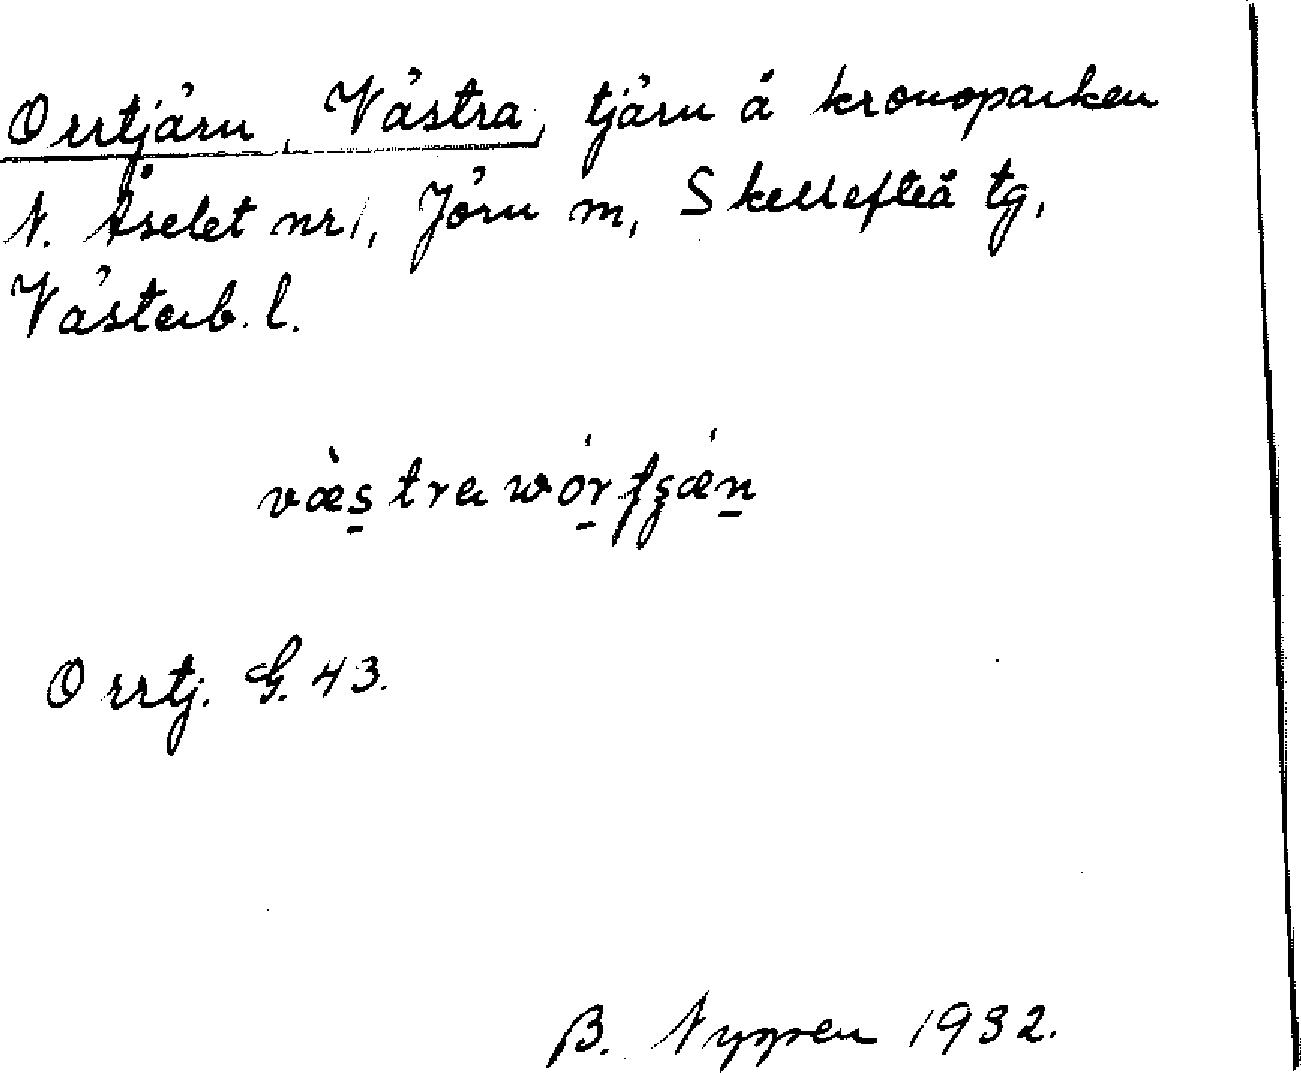 Orrtjärn, Västra, tjärn å kronoparken
N. Åselet nr 1, Jörn m, Skellefteå tg,
Västerb. l.
væ̀s̠tra wór̠tʂǽn̠
Orrtj. G. 43.
B. Nygren 1932.